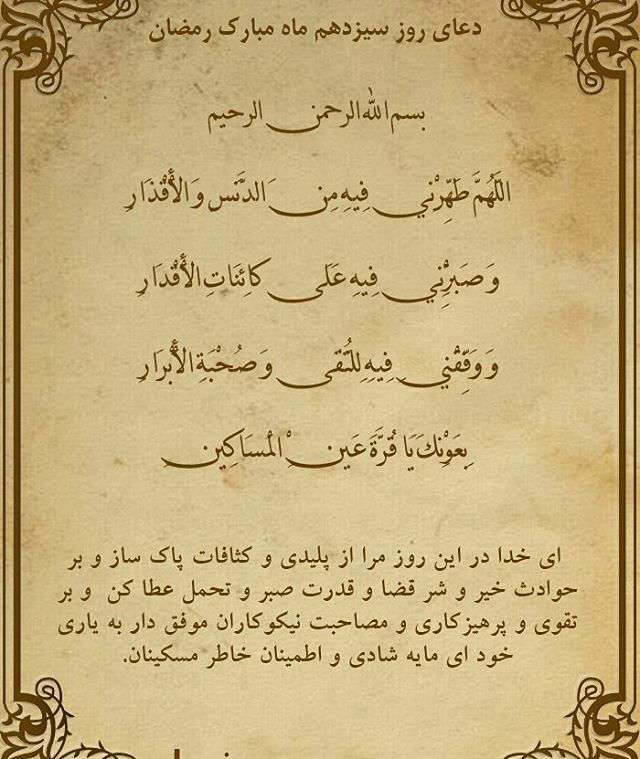 دعای روز سیزدهم ماه مبارک رمضان
بسم الله الرحمن الرحیم
اللَّهُمَّ طَهِّرْنِي فِيهِ مِنَ الدَّنَسِ وَ الْأَقْذَارِ
وَ صَبِّرْنِي فِيهِ عَلَى كَائِنَاتِ الْأَقْدَارِ
وَ وَفِّقْنِي فِيهِ لِلتُّقَى وَ صُحْبَةِ الْأَبْرَارِ
بِعَوْنِكَ يَا قُرَّةَ عَيْنِ الْمَسَاكِينِ
ای خدا در این روز مرا از پلیدی و کثافات پاک ساز و بر
حوادث خیر و شر قضا و قدرت صبر و تحمل عطا کن و بر
تقوی و پرهیزکاری و مصاحبت نیکوکاران موفق دار به یاری
خود ای مایه شادی و اطمینان خاطر مسکینان.